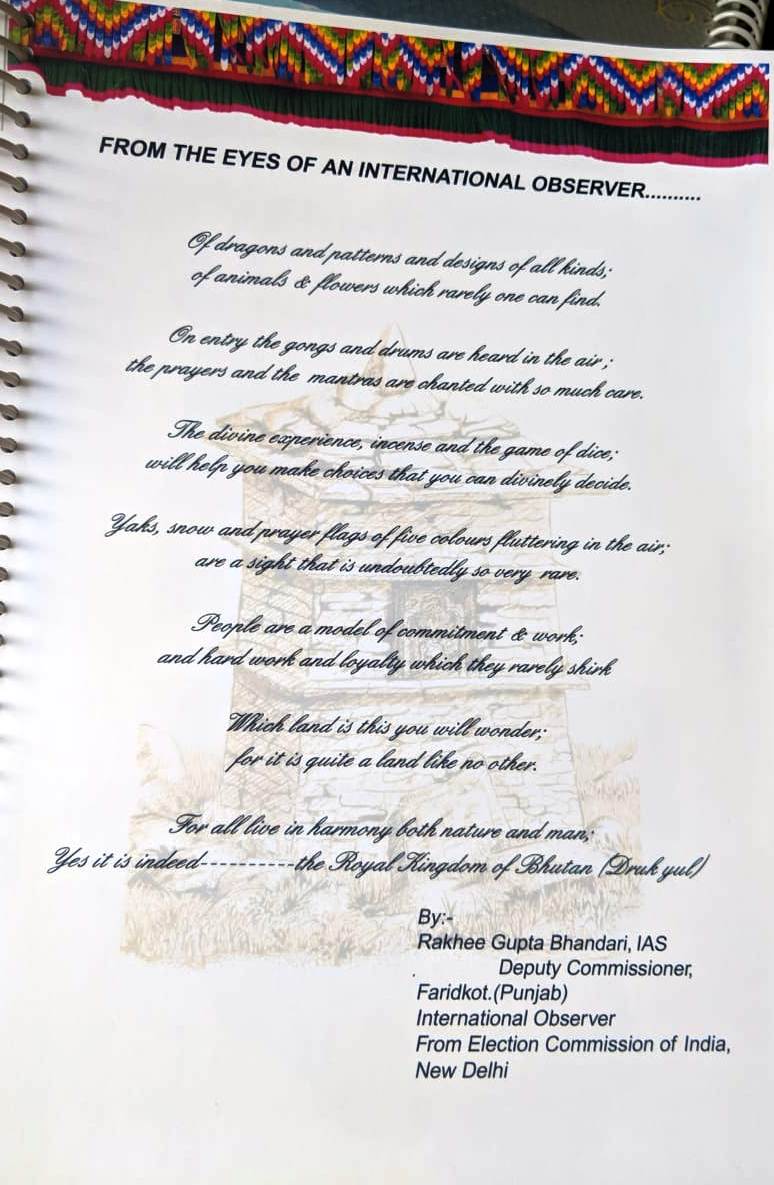 FROM THE EYES OF AN INTERNATIONAL OBSERVER..........
Of dragons and patterns and designs of all kinds;
of animals & flowers which rarely one can find.
On entry the gongs and drums are heard in the air ;
the prayers and the mantras are chanted with so much care.
The divine experience, incense and the game of dice;
will help you make choices that you can divinely decide.
Yaks, snow and prayer flags of five colours fluttering in the air;
are a sight that is undoubtedly so very rare.
People are a model of commitment & work;
and hard work and loyalty which they rarely shirk
Which land is this you will wonder;
for it is quite a land like no other.
For all live in harmony both nature and man;
Yes it is indeed----------the Royal Kingdom of Bhutan (Druk yul)
By:-
Rakhee Gupta Bhandari, IAS
Deputy Commissioner,
Faridkot.(Punjab)
International Observer
From Election Commission of India,
New Delhi